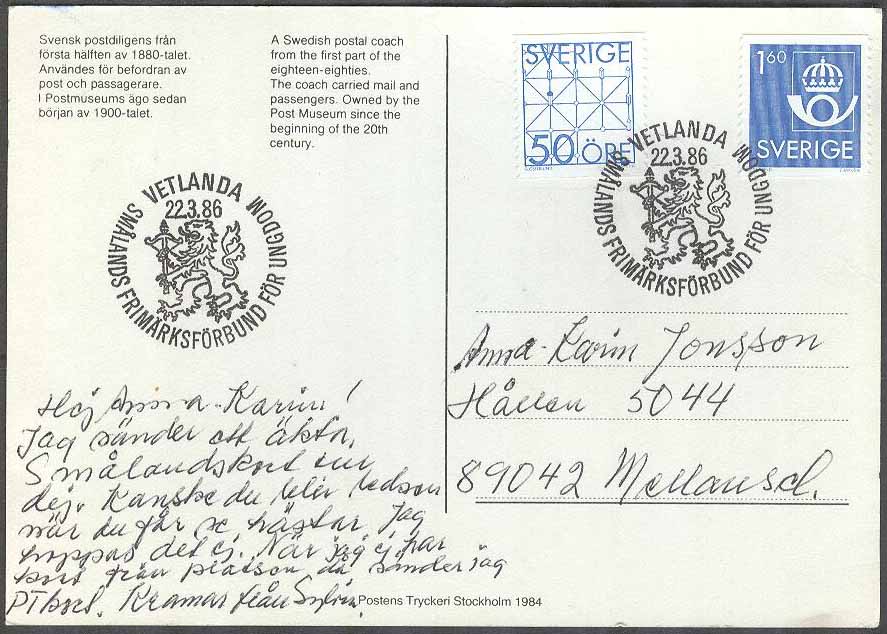 Svensk postdiligens från
första hälften av 1880-talet.
Användes för befordran av
post och passagerare.
I Postmuseums ägo sedan
början av 1900-talet.
A Swedish postal coach
from the first part of the
eighteen-eighties.
The coach carried mail and
passengers. Owned by the
Post Museum since the
beginning of the 20th
century.
SVERIGE
50 ÖRE
1 60
SVERIGE
VETLANDA
22.3.86
SMÅLANDS FRIMÄRKSFÖRBUND FÖR UNGDOM
VETLANDA
22.3.86
SMÅLANDS FRIMÄRKSFÖRBUND FÖR UNGDOM
Anna-Karin Jonsson
Hållen 5044
89042 Mellansel.
Hej Anna-Karin!
Jag sänder ett äkta
Smålandskort till
dej. Kanske du blir ledsen
när du får se hästar. Jag
hoppas det ej. När jag ej har
kort från platsen då sänder jag
PTkort. Kramar från
Postens Tryckeri Stockholm 1984